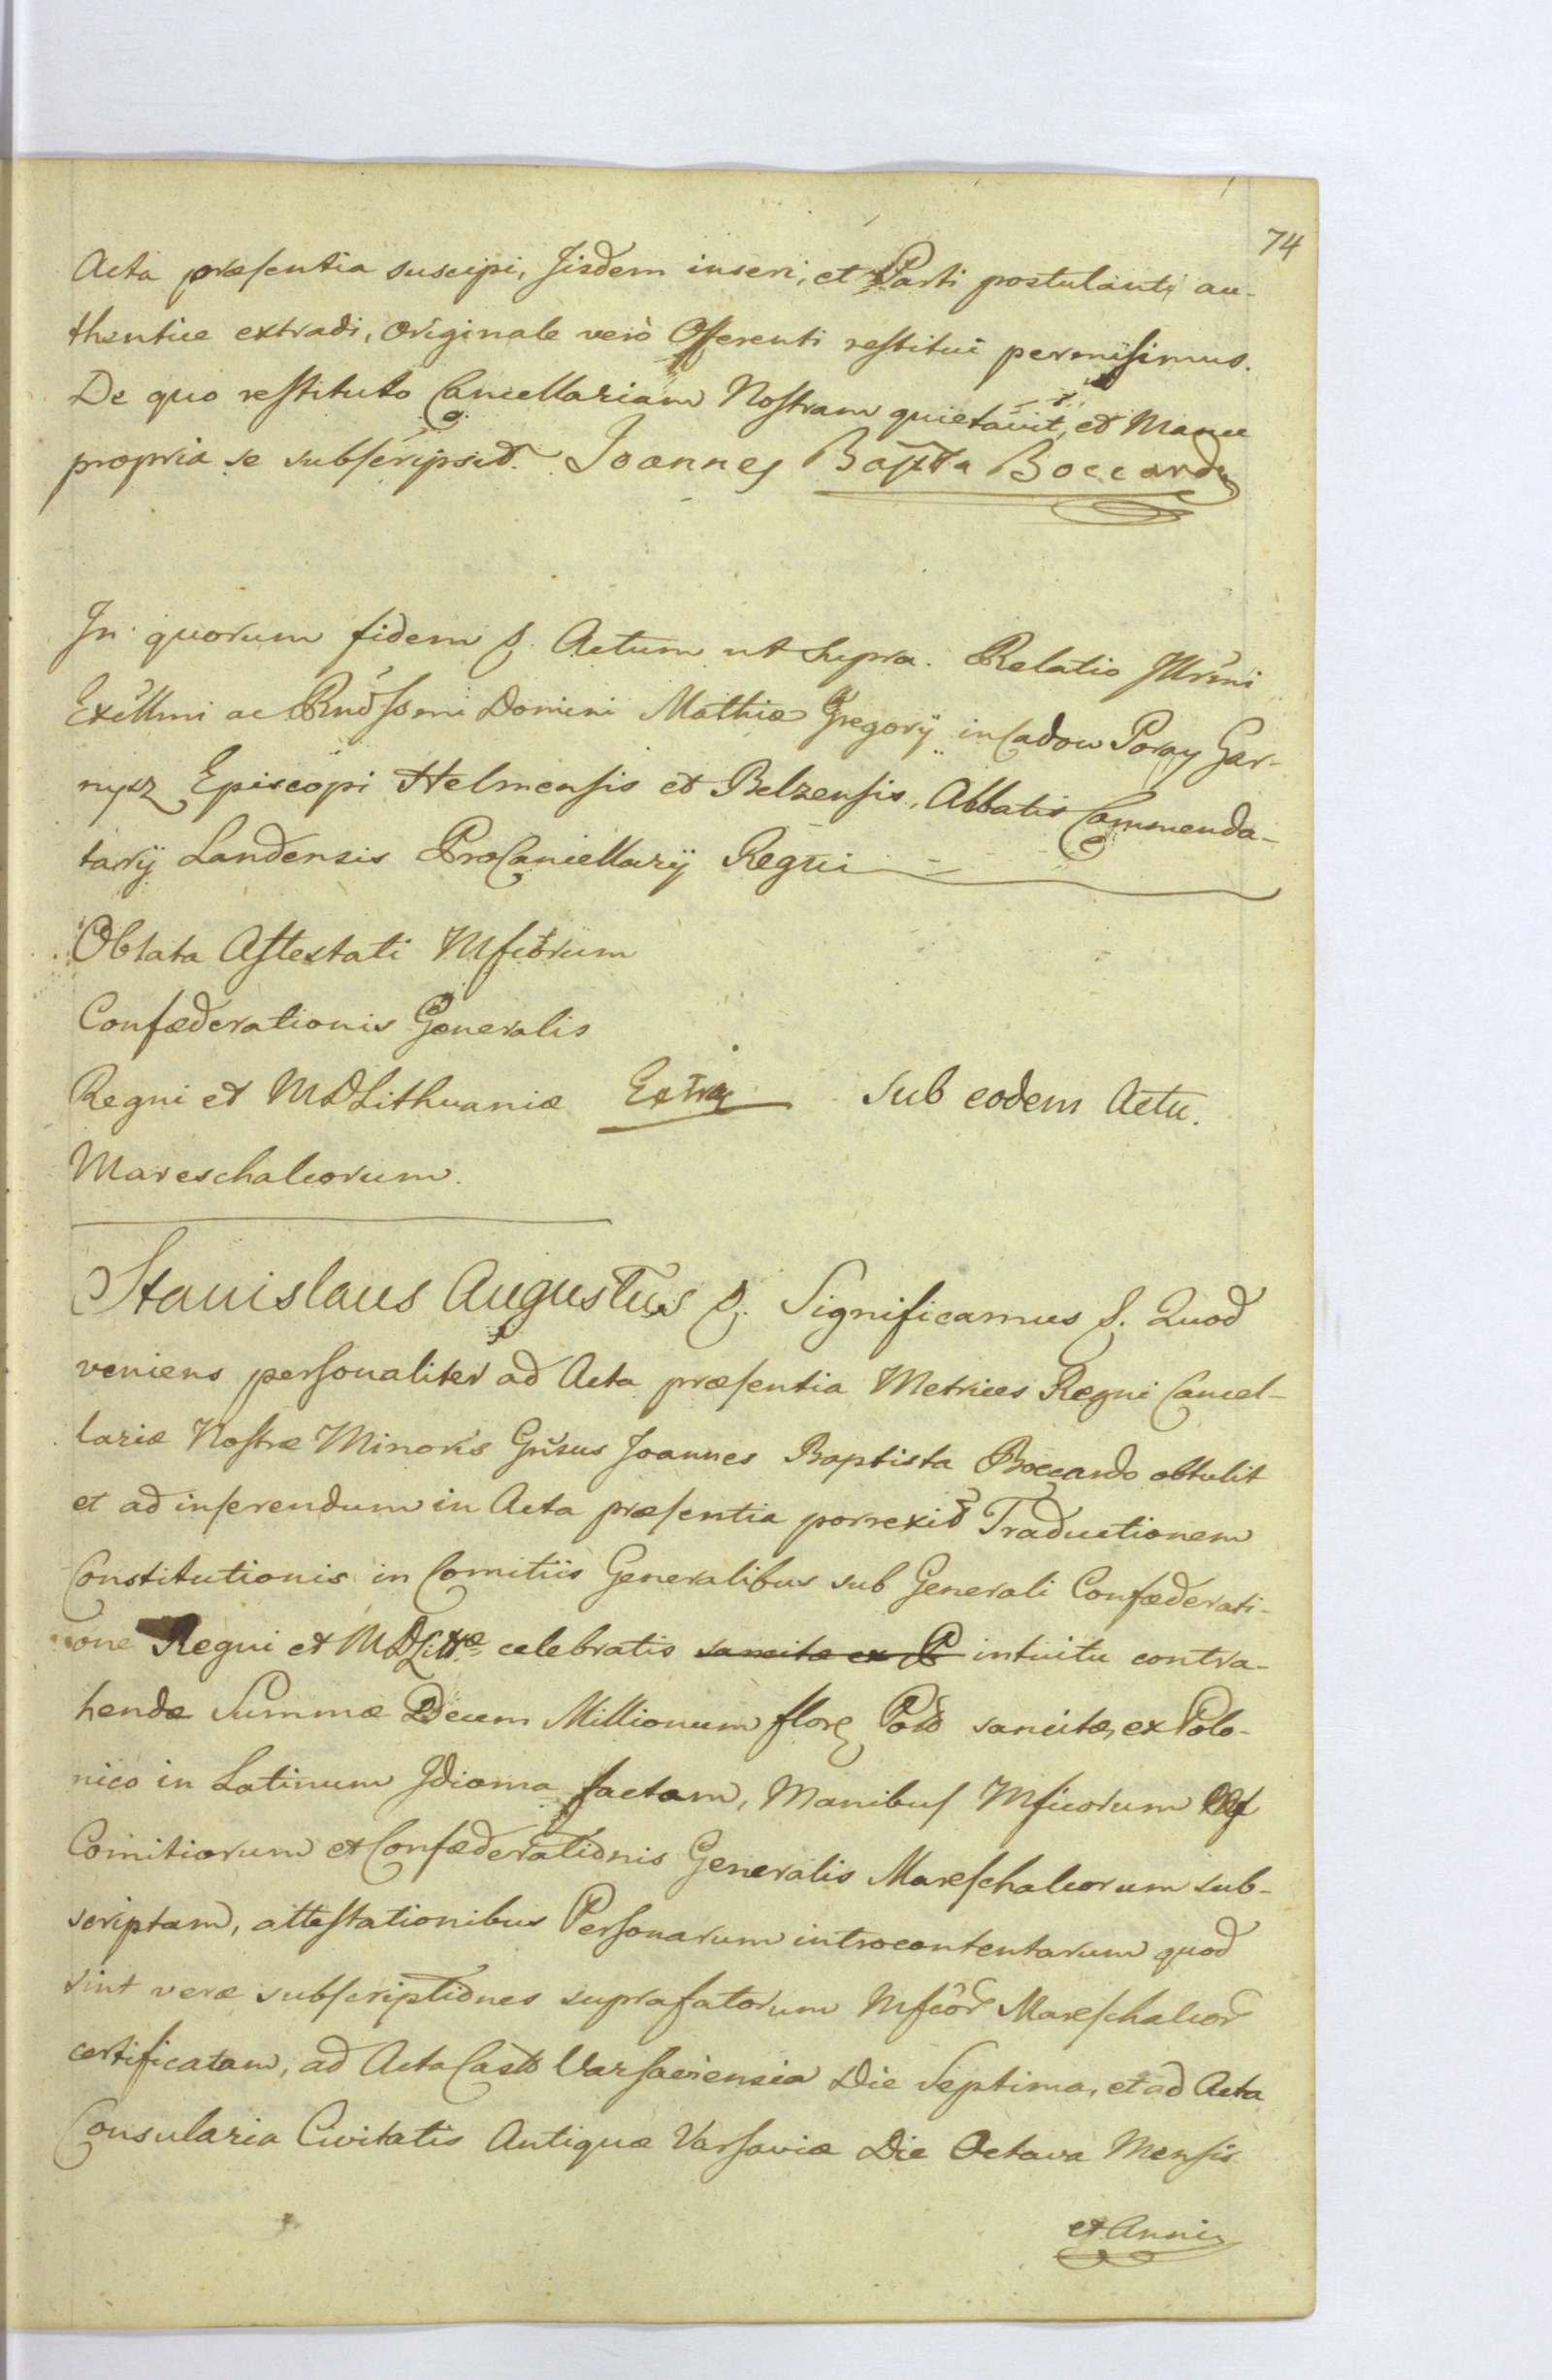 74
Acta præsentia suscipi, Jisdem inseri, et Parti postulanti au-
thentice extradi, Originale verò Offerenti restitui permisimus.
De quo restituto Cancellariam Nostram quietavit, et Manu
propria se subscripsit. Joannes Bapta Boccardo
In quorum fidem &. Actum ut Supra. Relatio Illrmi
Excllmi ac Rndssmi Domini Mathiæ Gregorÿ in Cadow Poray Gar-
nysz Episcopi Helmensis et Belzensis, Abbatis Commenda-
tarÿ Landensis ProCancellarÿ Regni
Oblata Attestati Mfcorum
Confæderationis Generalis
Regni et MDLithvaniæ Extra Sub eodem Actu.
Mareschalcorum.
Stanislaus Augustus &. Significamus &. Quod
veniens personaliter ad Acta præsentia Metrices Regni Cancel-
lariæ Nostræ Minoris Gnsus Joannes Baptista Boccardo obtulit
et ad inserendum in Acta præsentia porrexit Traductionem
Constitutionis in Comitiis Generalibus sub Generali Confæderati-
one Regni et MDLittæ celebratis sancitæ ex P intuitu contra-
hendæ Summæ Decem Millionum flor Pold sancitæ, ex Polo-
nico in Latinum Jdioma factam, Manibus Mficorum
Comitiorum et Confæderationis Generalis Mareschalcorum sub-
scriptam, attestationibus Personarum introcontentarum quod
sint veræ subscriptiones suprafatorum Mfcor Mareschalcor
certificatam, ad Acta Casto Varsaviensia Die Septima, et ad Acta
Consularia Civitatis Antiquæ Varsaviæ Die Octava Mensis
et Anni